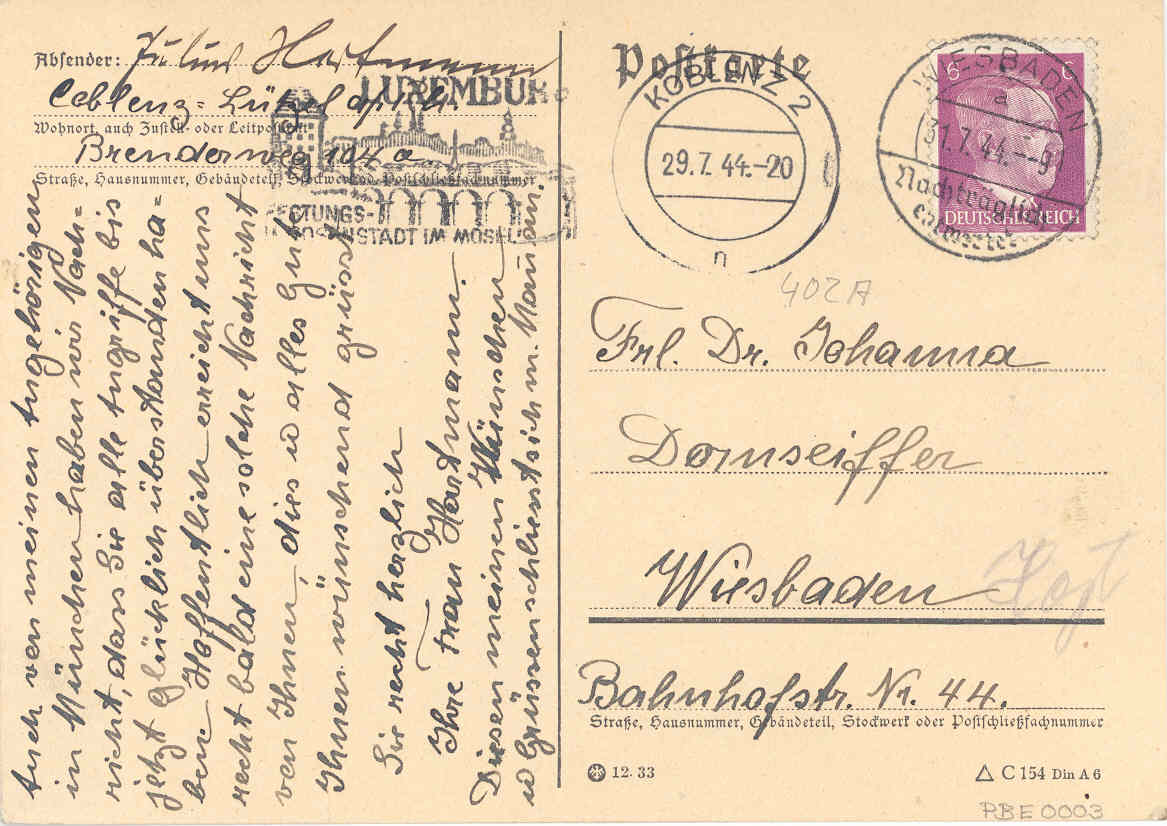 Absender: Julius Hartmann
Coblenz-Lützel
Wohnort, auch Zustell- oder Leitpostamt
Brenderweg 104 a.
Straße, Hausnummer, Gebäudeteil, Stockwerk od. Postschließfachnummer
LUXEMBURG
STADT IM MOSELLAND
Auch von meinen Angehörigen
in München haben wir Nach-
richt, dass Sie alle Angriffe bis
jetzt glücklich überstanden ha-
ben. Hoffentlich erreicht uns
recht bald eine solche Nachricht
von Ihnen, dies u alles Gute
Ihnen wünschend grüsst
Sie recht herzlich
Ihre Frau Hartmann.
Diesen meinen Wünschen
u Grüssen schliesst sich m. Mann an.
Postkarte
KOBLENZ 2
29.7.44.-20
n
WIESBADEN
a
31.7.44.--9
Nachträglich
entwertet
6 6
DEUTSCHES REICH
402A
Frl. Dr. Johanna
Dornseiffer
Wiesbaden
Bahnhofstr. Nr. 44.
Straße, Hausnummer, Gebäudeteil, Stockwerk oder Postschließfachnummer
12. 33
C 154 Din A 6
PBE 0003